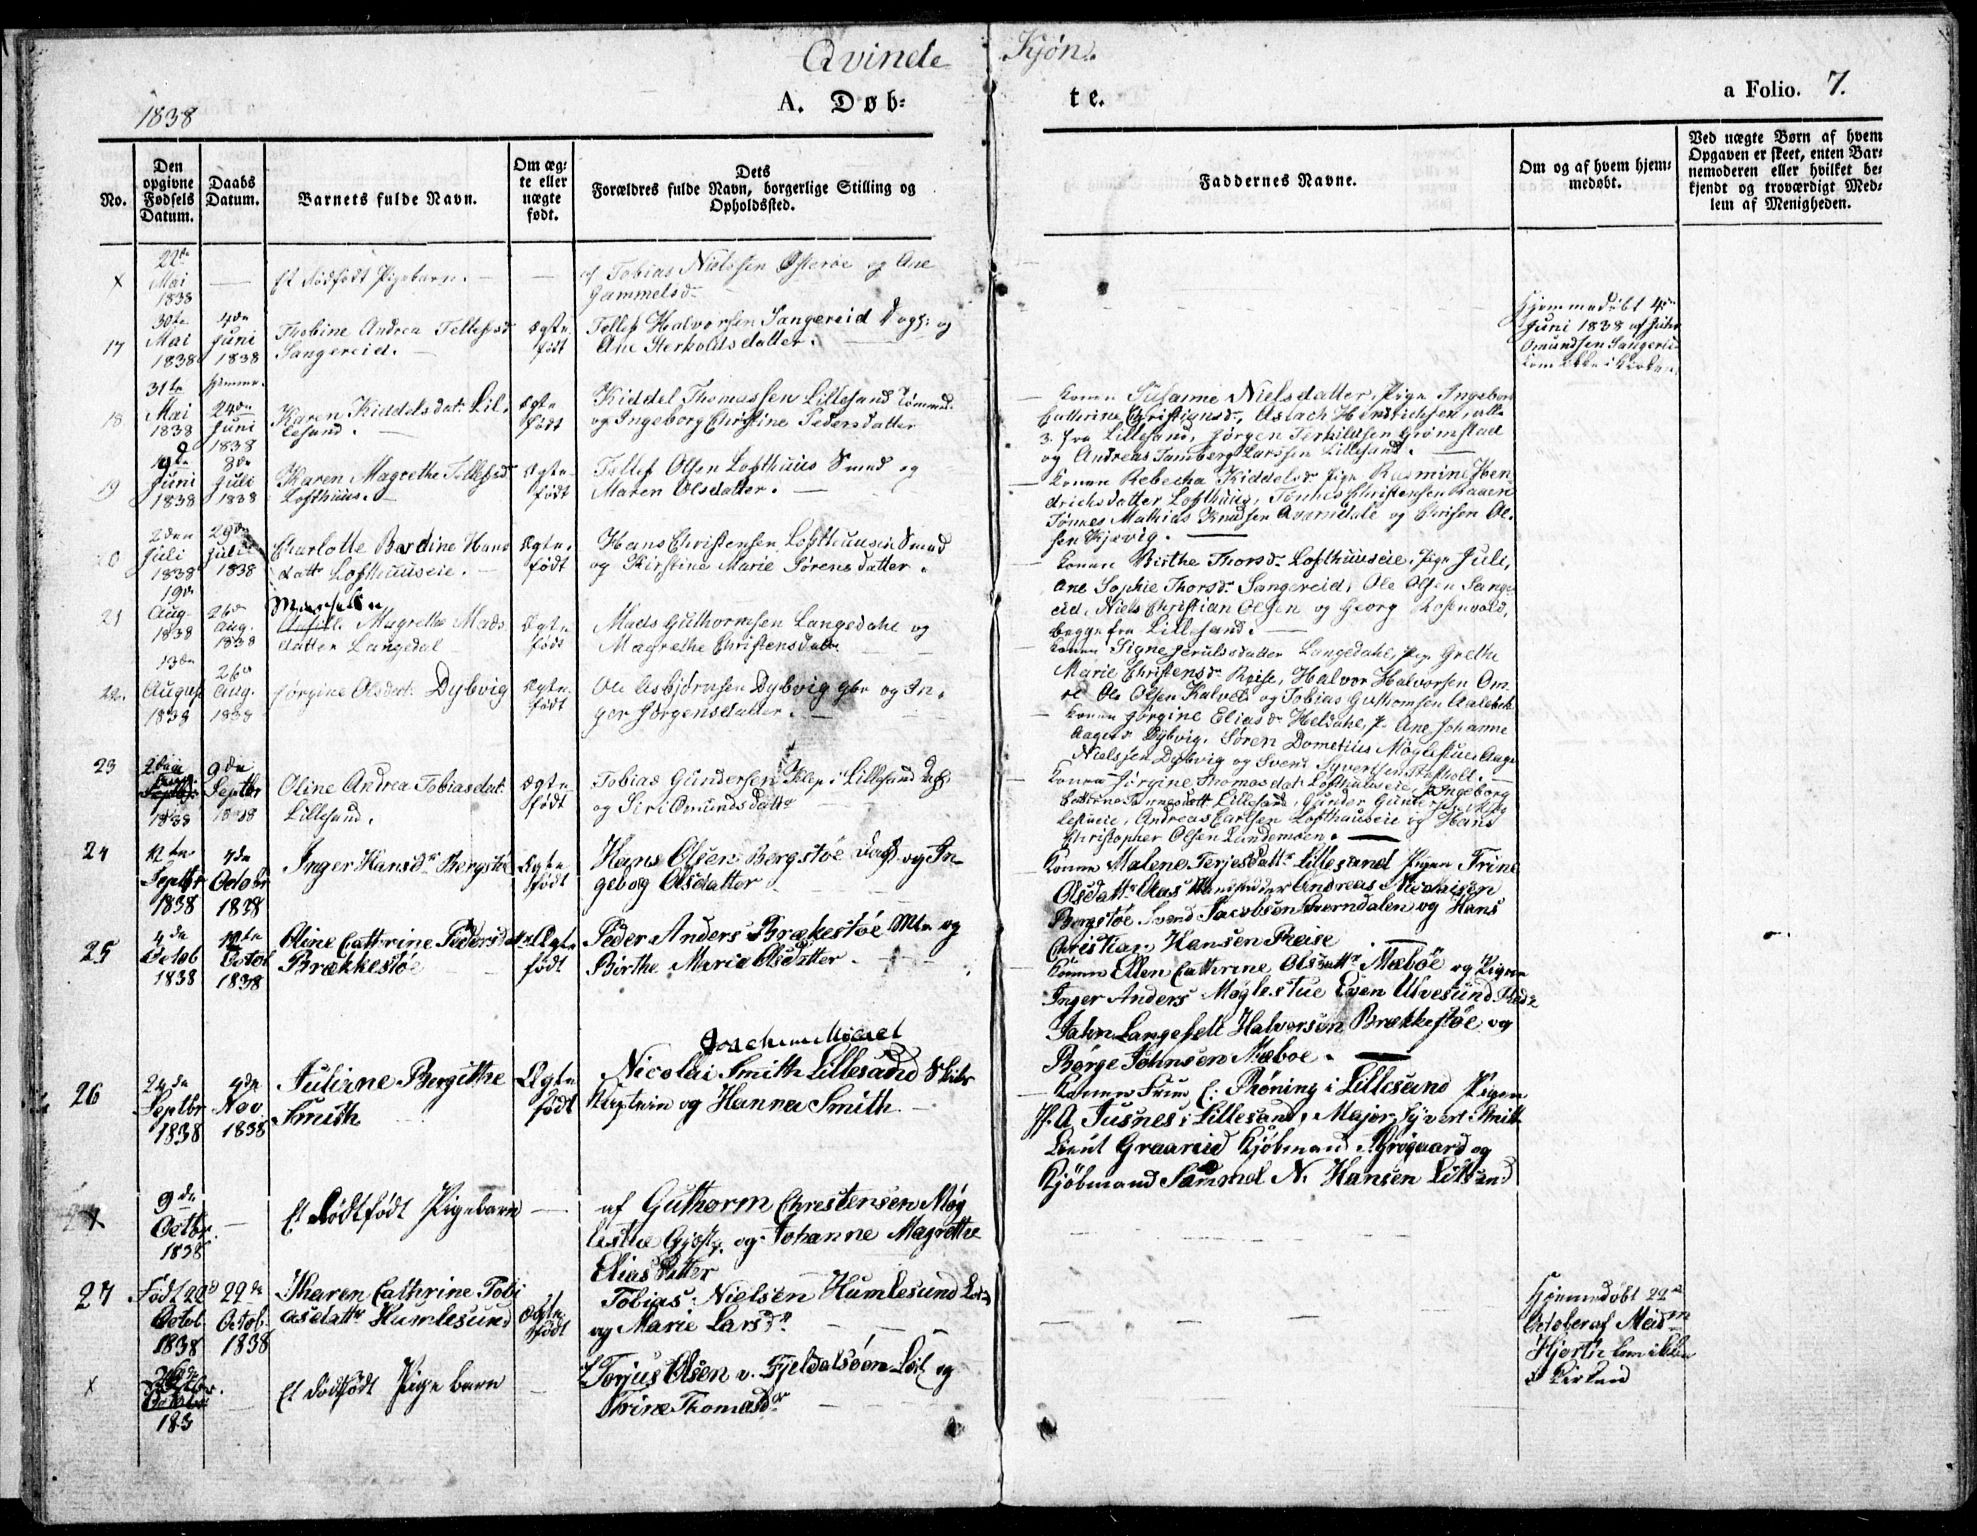 Qvinde Kjøn.
A. Døb- te.
a Folio. 7.
1838
No.
Den opgivne Fødsels Datum.
Daabs Datum.
Barnets fulde Navn.
Om ægte eller nægte født.
Dets
Forældres fulde Navn, borgerlige Stilling og
Opholdssted.
Faddernes Navne.
Om og af hvem hjem-
medøbt.
Ved nægte Børn af hvem
Opgaven er skeet, enten Bar-
nemoderen eller hvilket be-
kjendt og troværdigt Med-
lem af Menigheden.
x
22de Mai 1838
Et dødfødt Pigebarn.
af Tobias Nielssen Østerøe og Ane
Gammelsd.
17
30te Mai 1838
4de Juni 1838
Thobine Andrea Tellefsd
Sangereid.
Ægte født
Tellef Halvorsen Sangereid og
Ane Herkoldsdatter.
Hjemmedøbt 4de
Juni 1838 af
Omundsen Sangereid
kom ikke i Kirken
18
31te Mai 1838
24de Juni 1838
Karen Kiddelsdat. Lil-
lesand.
Ægte født
Kiddel Thomassen Lillesand
og Ingeborg Christine Pedersdatter
Konen Susanne Nielsdatter, Pige Ingebor
Cathrine Aslach alle
3 fra Lillesand, Jørgen Terkildsen Grømstad
og Andreas Larssen Lillesand.
19
Juni 1838
8de Juli 1838
Karen Magrethe Tellefsd
Lofthuus.
Ægte født
Tellef Olsen Lofthuus Smed og
Maren Olsdatter.
Konen Rebecha Kiddelsd. Pige Rasmine Hen
drichsdatter Lofthuus, Tønnes Christensen
Tønnes Mathias Knudsen og Ol-
sen Kjøvig.
20
2den Juli 1838
29de Juli 1838
Charlotte Bardine Hans
datt Lofthuuseie.
Ægte født
Hans Christensen Lofthuuseie Smed
og Kirstine Marie Sørensdatter.
Konen Birthe Thorsd. Lofthuuseie, Pige Juli,
Ane Sophie Thorsd. Sangereid, Ole Olsen Sange
eid, Niels Christian Olsen og Georg Rosenvold,
begge fra Lillesand.
21
19de Aug. 1838
26de Aug. 1838
Magrethe Mads
datter Langedal
Ægte født
Mads Guthormsen Langedahl og
Magrethe Christensdatter
Konen Signe Langedahl, Pige Grethe
Marie Christensd. Reise, Halvor Halvorsen Om
re Ole Olsen Kalvehl og Tobias Guthormsen Aalebek
22.
13de August 1838
26de Aug. 1838
Jørgine Olsdat. Dybvig
Ægte født
Ole Asbjørnsen Dybvig og In-
ger Jørgensdatter.
Konen Jørgine Eliasd. Heldahl, P. Ane Johanne
Aagesd. Dybvig, Søren Dometius Møglestue, Aage
Nielssen Dybvig og Svend Syvertsen
23
1838
9de Septbr 1838
Oline Andrea Tobiasdat.
Lillesand.
Ægte født
Tobias Gundersen Klep i Lillesand
og Siri Omundsdatter
Konen Jørgine Thomasdat Lofthuuseie, P. Ingeborg
Lillesand, Gunder Gundersen Møg
lestueeie, Andreas Carlsen Lofthuuseie og Hans
Christopher Olsen Lundemoen.
24
12te Septbr 1838
7de Octobr 1838
Inger Hansdr Bergstøe
Ægte født
Hans Olsen Bergstøe og In-
gebog Olsdatter
Konen Malene Terjesdattr Lillesand Pigen Trine
Olsdattr Aas Andreas Nicolaisen
Bergstøe Svend Jacobsen og Hans
Christian Hansen Reise
25
4de Octob 1838
Octob 1838
Oline Cathrine Pedersdat
Brækkestøe
Ægte født
Peder Anders Brækkestøe og
Birthe Marie Olsdatter
Konen Ellen Cathrine Olsdattr Mæbøe og Pigen
Inger Anders Møglestue Even Ulvesund
Jahn Langefelt Halvorsen Brækkestøe og
Børge Johnsen Mæbøe.
26
24de Septbr 1838
4de Nov 1838
Juliane Bergithe
Smith
Ægte født
Jochum Michael
Nicolai Smith Lillesand Skibs
Kaptein og Hanna Smith
Røning i Lillesand Pigen
H. A. Tusnes i Lillesand, Major Syvert Smith
Lieut Graareid Kjøbmand og
Kjøbmand Sammel N. Hansen Lillesand
x
9de Octbr. 1838
Et Dødfødt Pigebarn
af Guthorm Christensen Møg
lestue og Johanne Magrethe
Elias Datter
27
Født 20d Octob 1838
22de Octob. 1838
Karen Cathrine Tobi
asdattr Humlesund
Ægte født
Tobias Nielsen Humlesund
og Marie Larsdr
Hjemmedøbt 22de
October af Madm
Hjorth kom ikke
i Kirken
x
183
Et dødfødt Pige barn
Torjus Olsen v. Fjeldalsøen og
Trine Thomasdr